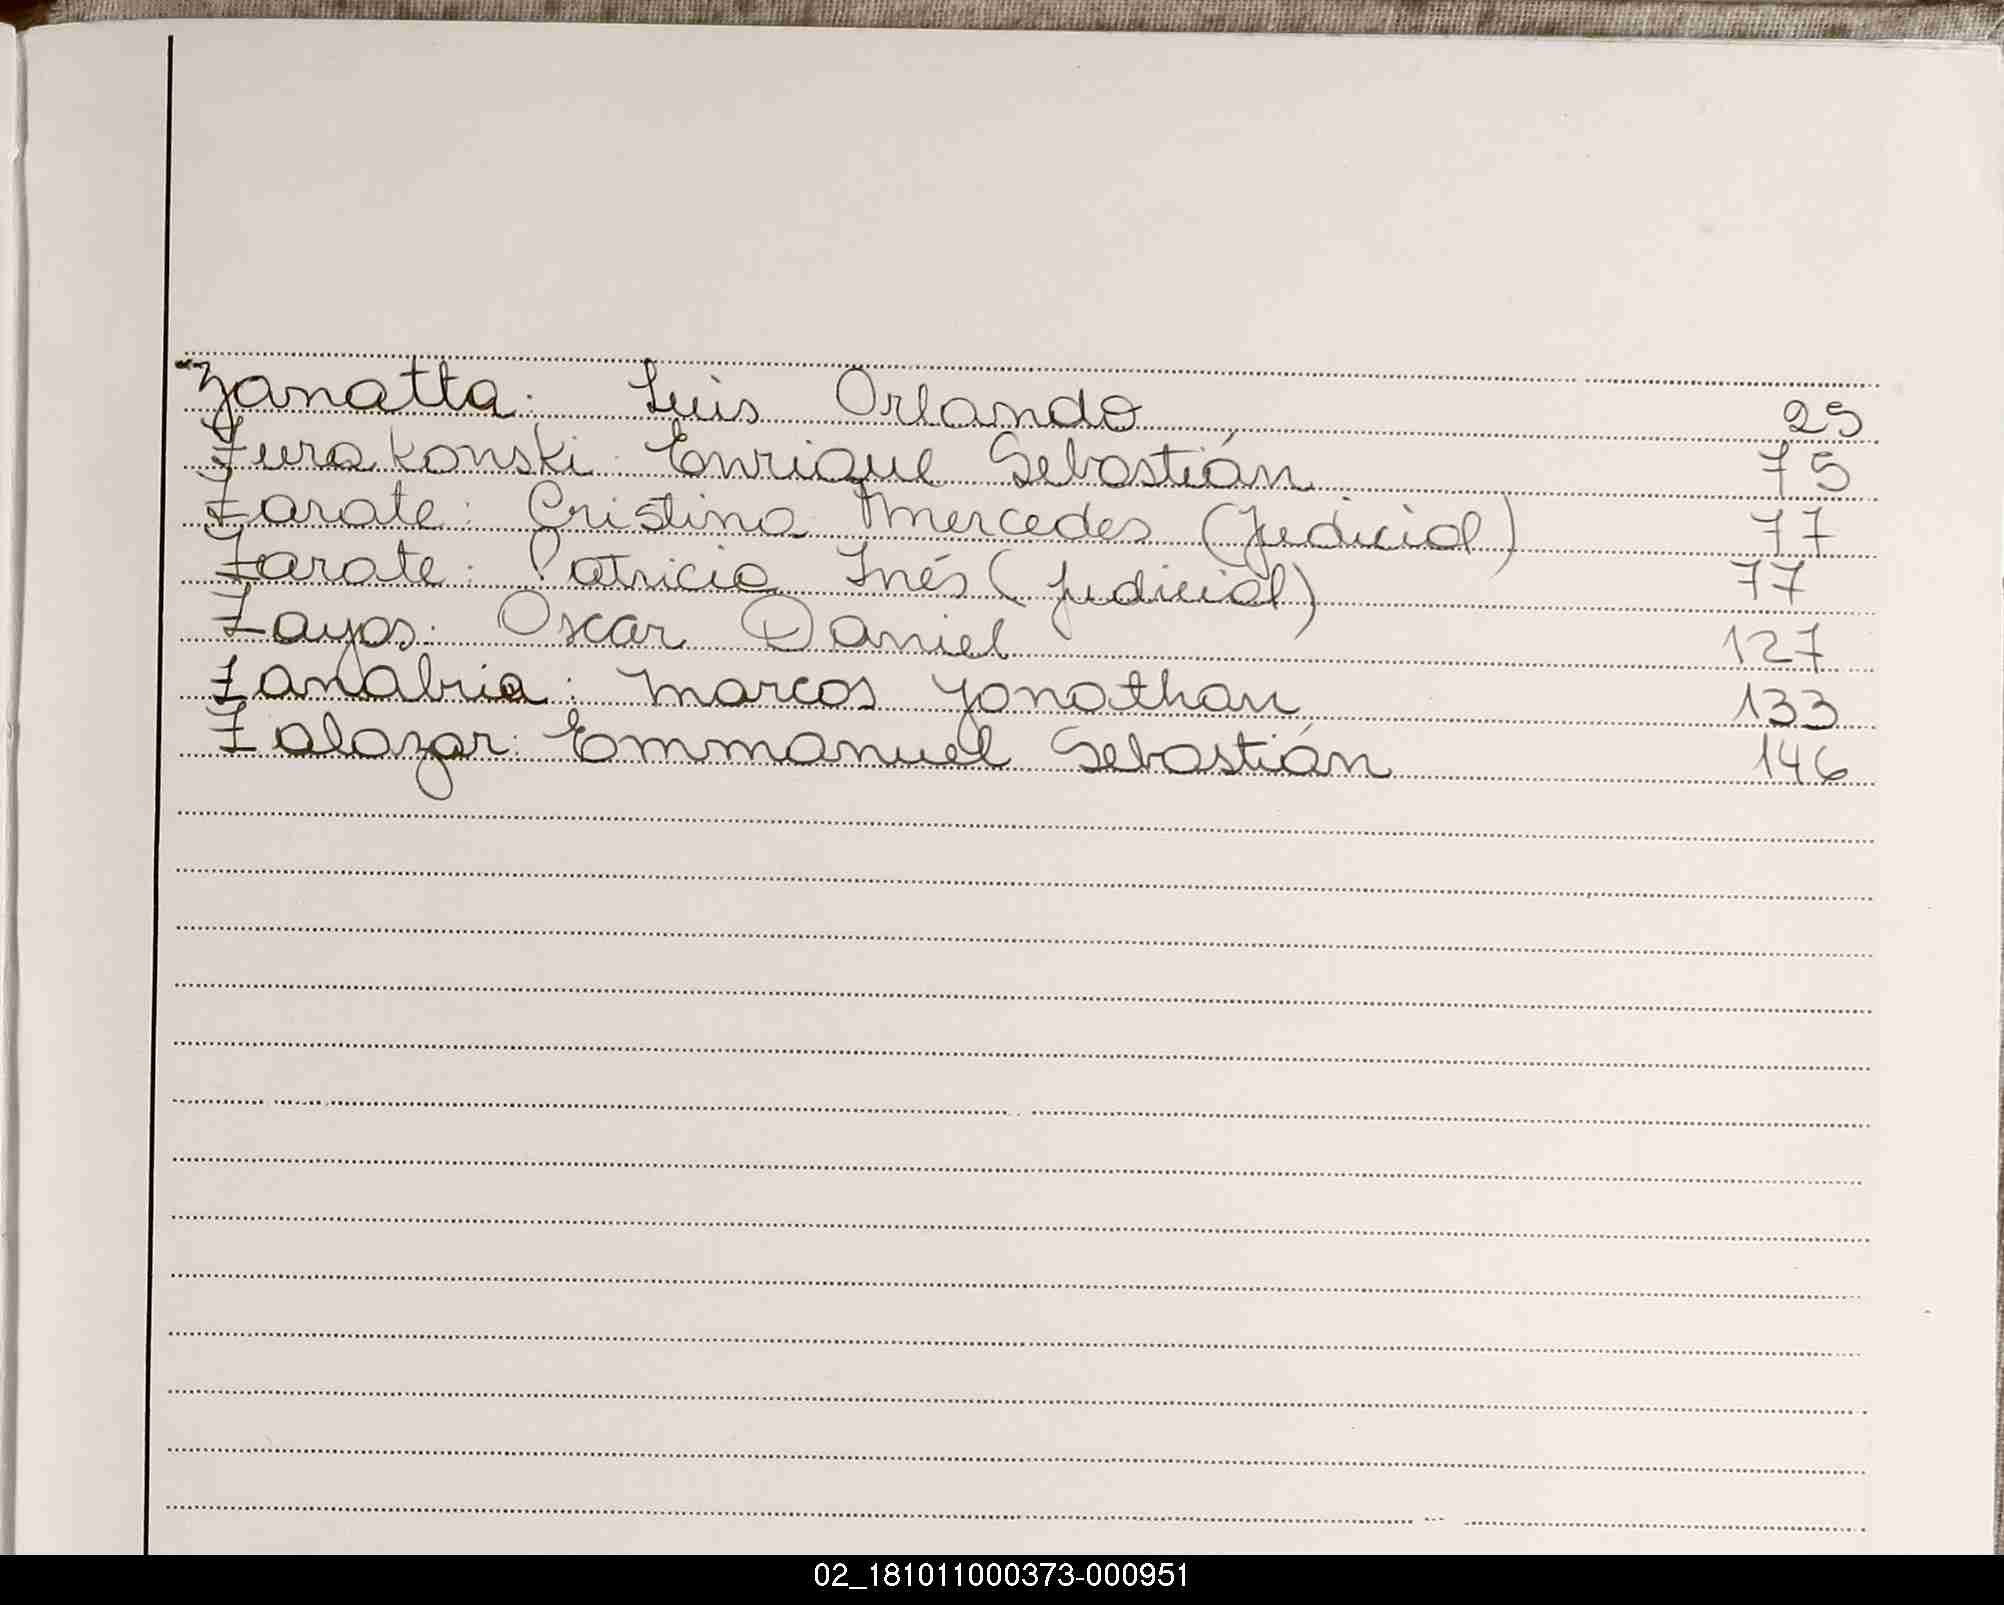 Zanatta. Luis Orlando 29
Zurakonski. Enrique Sebastián 75
Zarate: Cristina Mercedes (Judicial) 77
Zarate: Patricia Inés (Judicial) 77
Zayas: Oscar Daniel 127
Zanabria: Marcos Jonathan 133
Zalazar: Emmanuel Sebastián 146
02_181011000373-000951